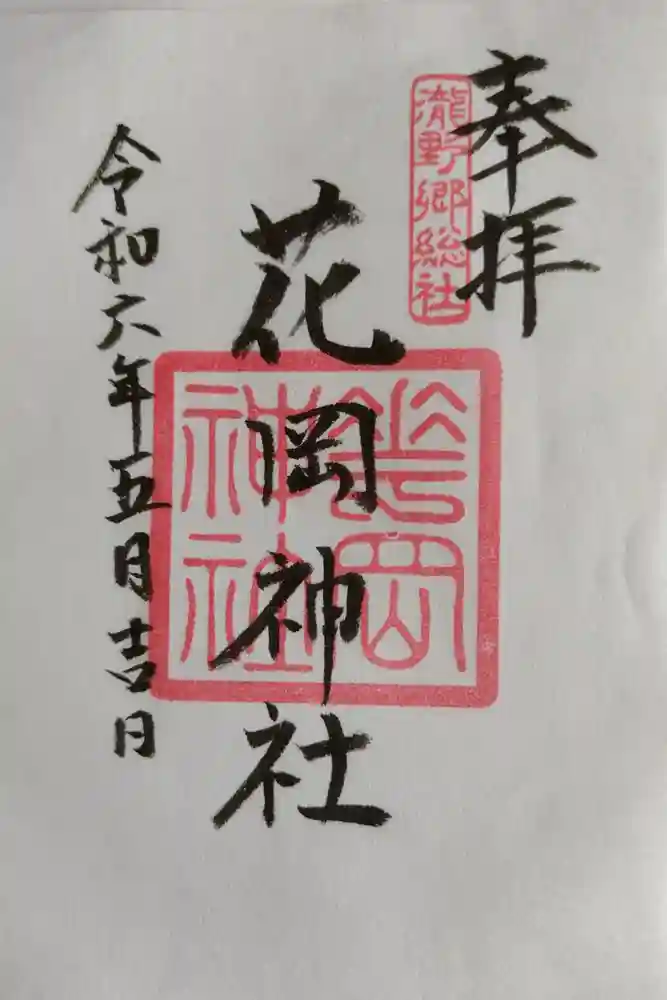 奉拝
瀧野郷総社
花岡神社
花岡神社
令和六年五月吉日